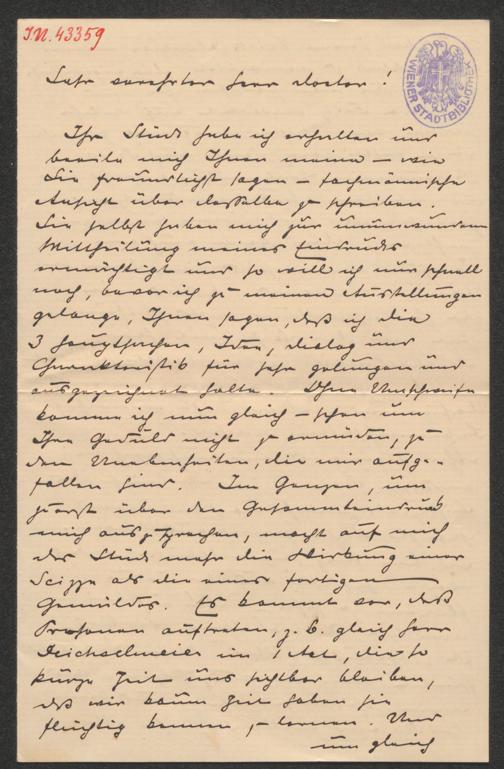 I.N. 43359
WIENER STADTBIBLIOTHEK
Sehr verehrter Herr Doctor!
Ihr Stück habe ich erhalten und
beeile mich Ihnen meine – wie
Sie freundlichst sagen – fachmännische
Ansicht über dasselbe zu schreiben.
Sie selbst haben mich zur unumwundenen
Mittheilung meines Eindrucks
ermächtigt und so will ich nur schnell
noch, bevor ich zu meinen Ausstellungen
gelange, Ihnen sagen, daß ich die
3 Hauptsachen, Idee, Dialog und
Charakteristik für sehr gelungen und
ausgezeichnet halte. Ohne Umschweife
komme ich nun gleich – schon um
Ihre Geduld nicht zu ermüden, zu
den Unebenheiten, die mir aufge-
fallen sind. Im Ganzen, um
zuerst über den Gesammteindruck
mich auszusprechen, macht auf mich
das Stück mehr die Wirkung einer
Scizze als die eines fertigen
Gemäldes. Es kommt vor, daß
Personen auftreten, z. b. gleich Herr
im 1 Act, die so
kurze Zeit uns sichtbar bleiben,
daß wir kaum Zeit haben sie
flüchtig kennen zu lernen. Und
um gleich